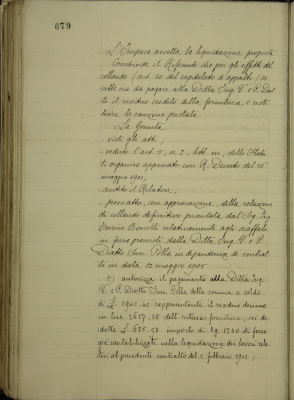 679
L'Impresa accetta la liquidazione proposta
Conclude il Riferente che per gli effetti del
collaudo (art. 10 del capitolato d'appalto)
da pagare alla Ditta Ing. V. e P. Diat
to il residuo credito della fornitura, e resti
tuire la cauzione prestata.
La Giunta
- visti gli atti;
- veduto l'art. 5, n. 2, lett. m, dello Statu
to organico approvato con R. Decreto del 25
maggio 1901;
- sentito il Relatore;
- preso atto, con approvazione, della relazione
di collaudo definitivo presentata dal Sig. Ing.
relativamente agli
in ferro provvisti dalla Ditta Ing. V. e P.
Diatto Succ. Polla in dipendenza di contrat
to in data 12 maggio 1905
1°) autorizza il pagamento alla Ditta Ing.
V. e P. Diatto Succ. Polla della somma a saldo
di £. 1941,40 rappresentante il residuo decimo
in lire 2617,38 dell'intiera fornitura, ivi de
dotte £. 675,98 importo di Kg. 1230 di ferro
già contabilizzati nella liquidazione dei lavori rela
tivi al precedente contratto del 2 febbraio 1902;